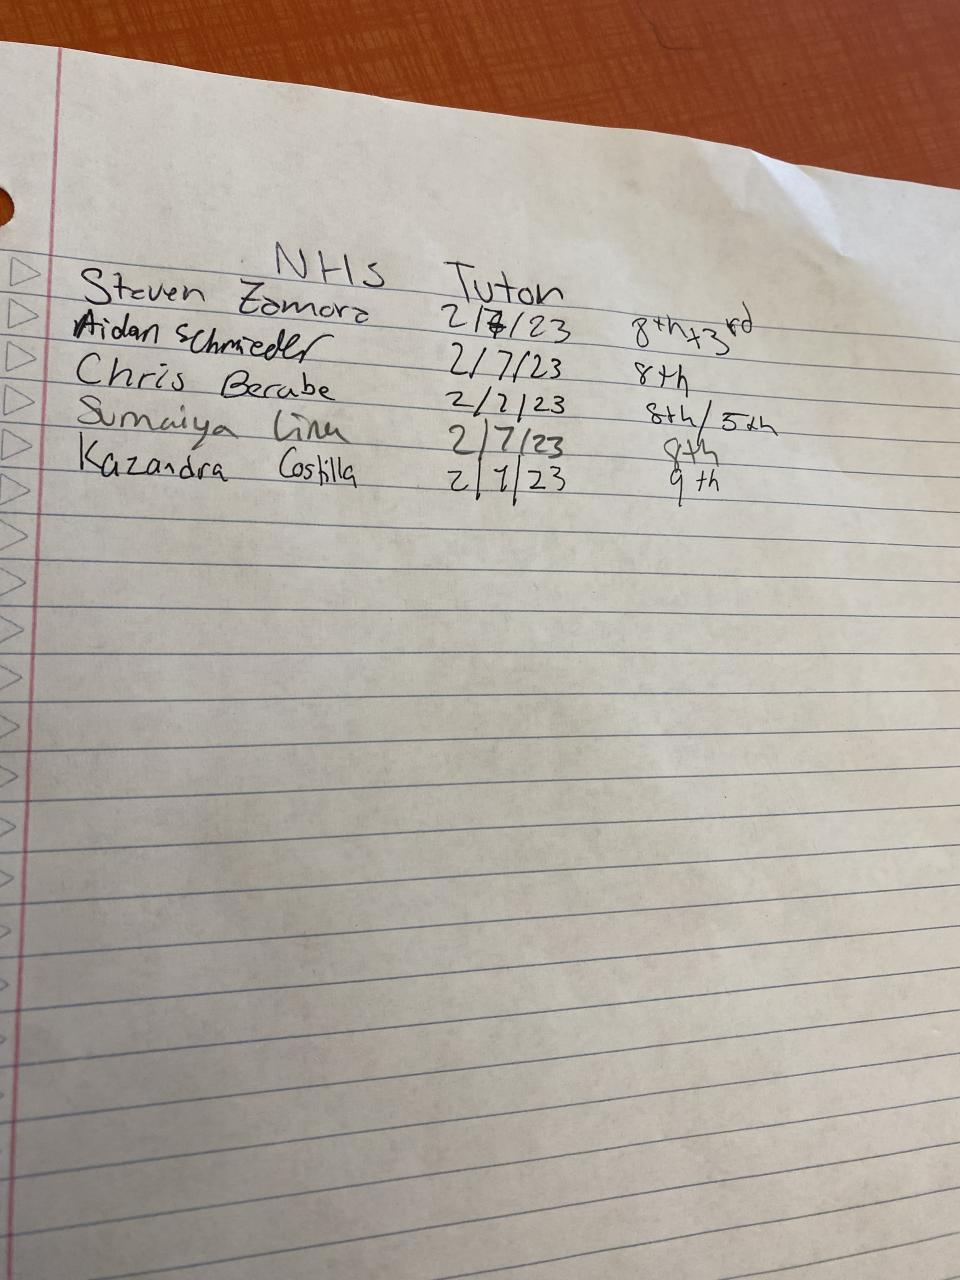 NHS Tutor
Steven Zamora 2/7/23 8th+3rd
Aidan Schmieder 2/7/23 8th
Chris Berube 2/7/23 8th/5th
Sumaiya 2/7/23 8th
Kazandra Costilla 2/7/23 9th